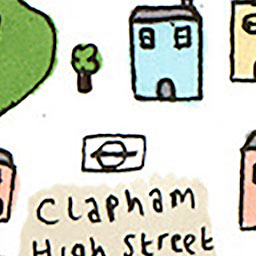 Clapham
High Street